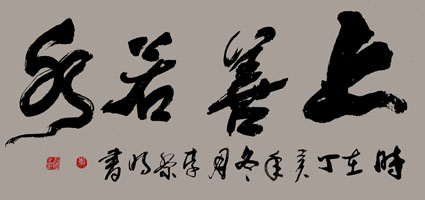 上善若水
時在丁亥年冬月李書